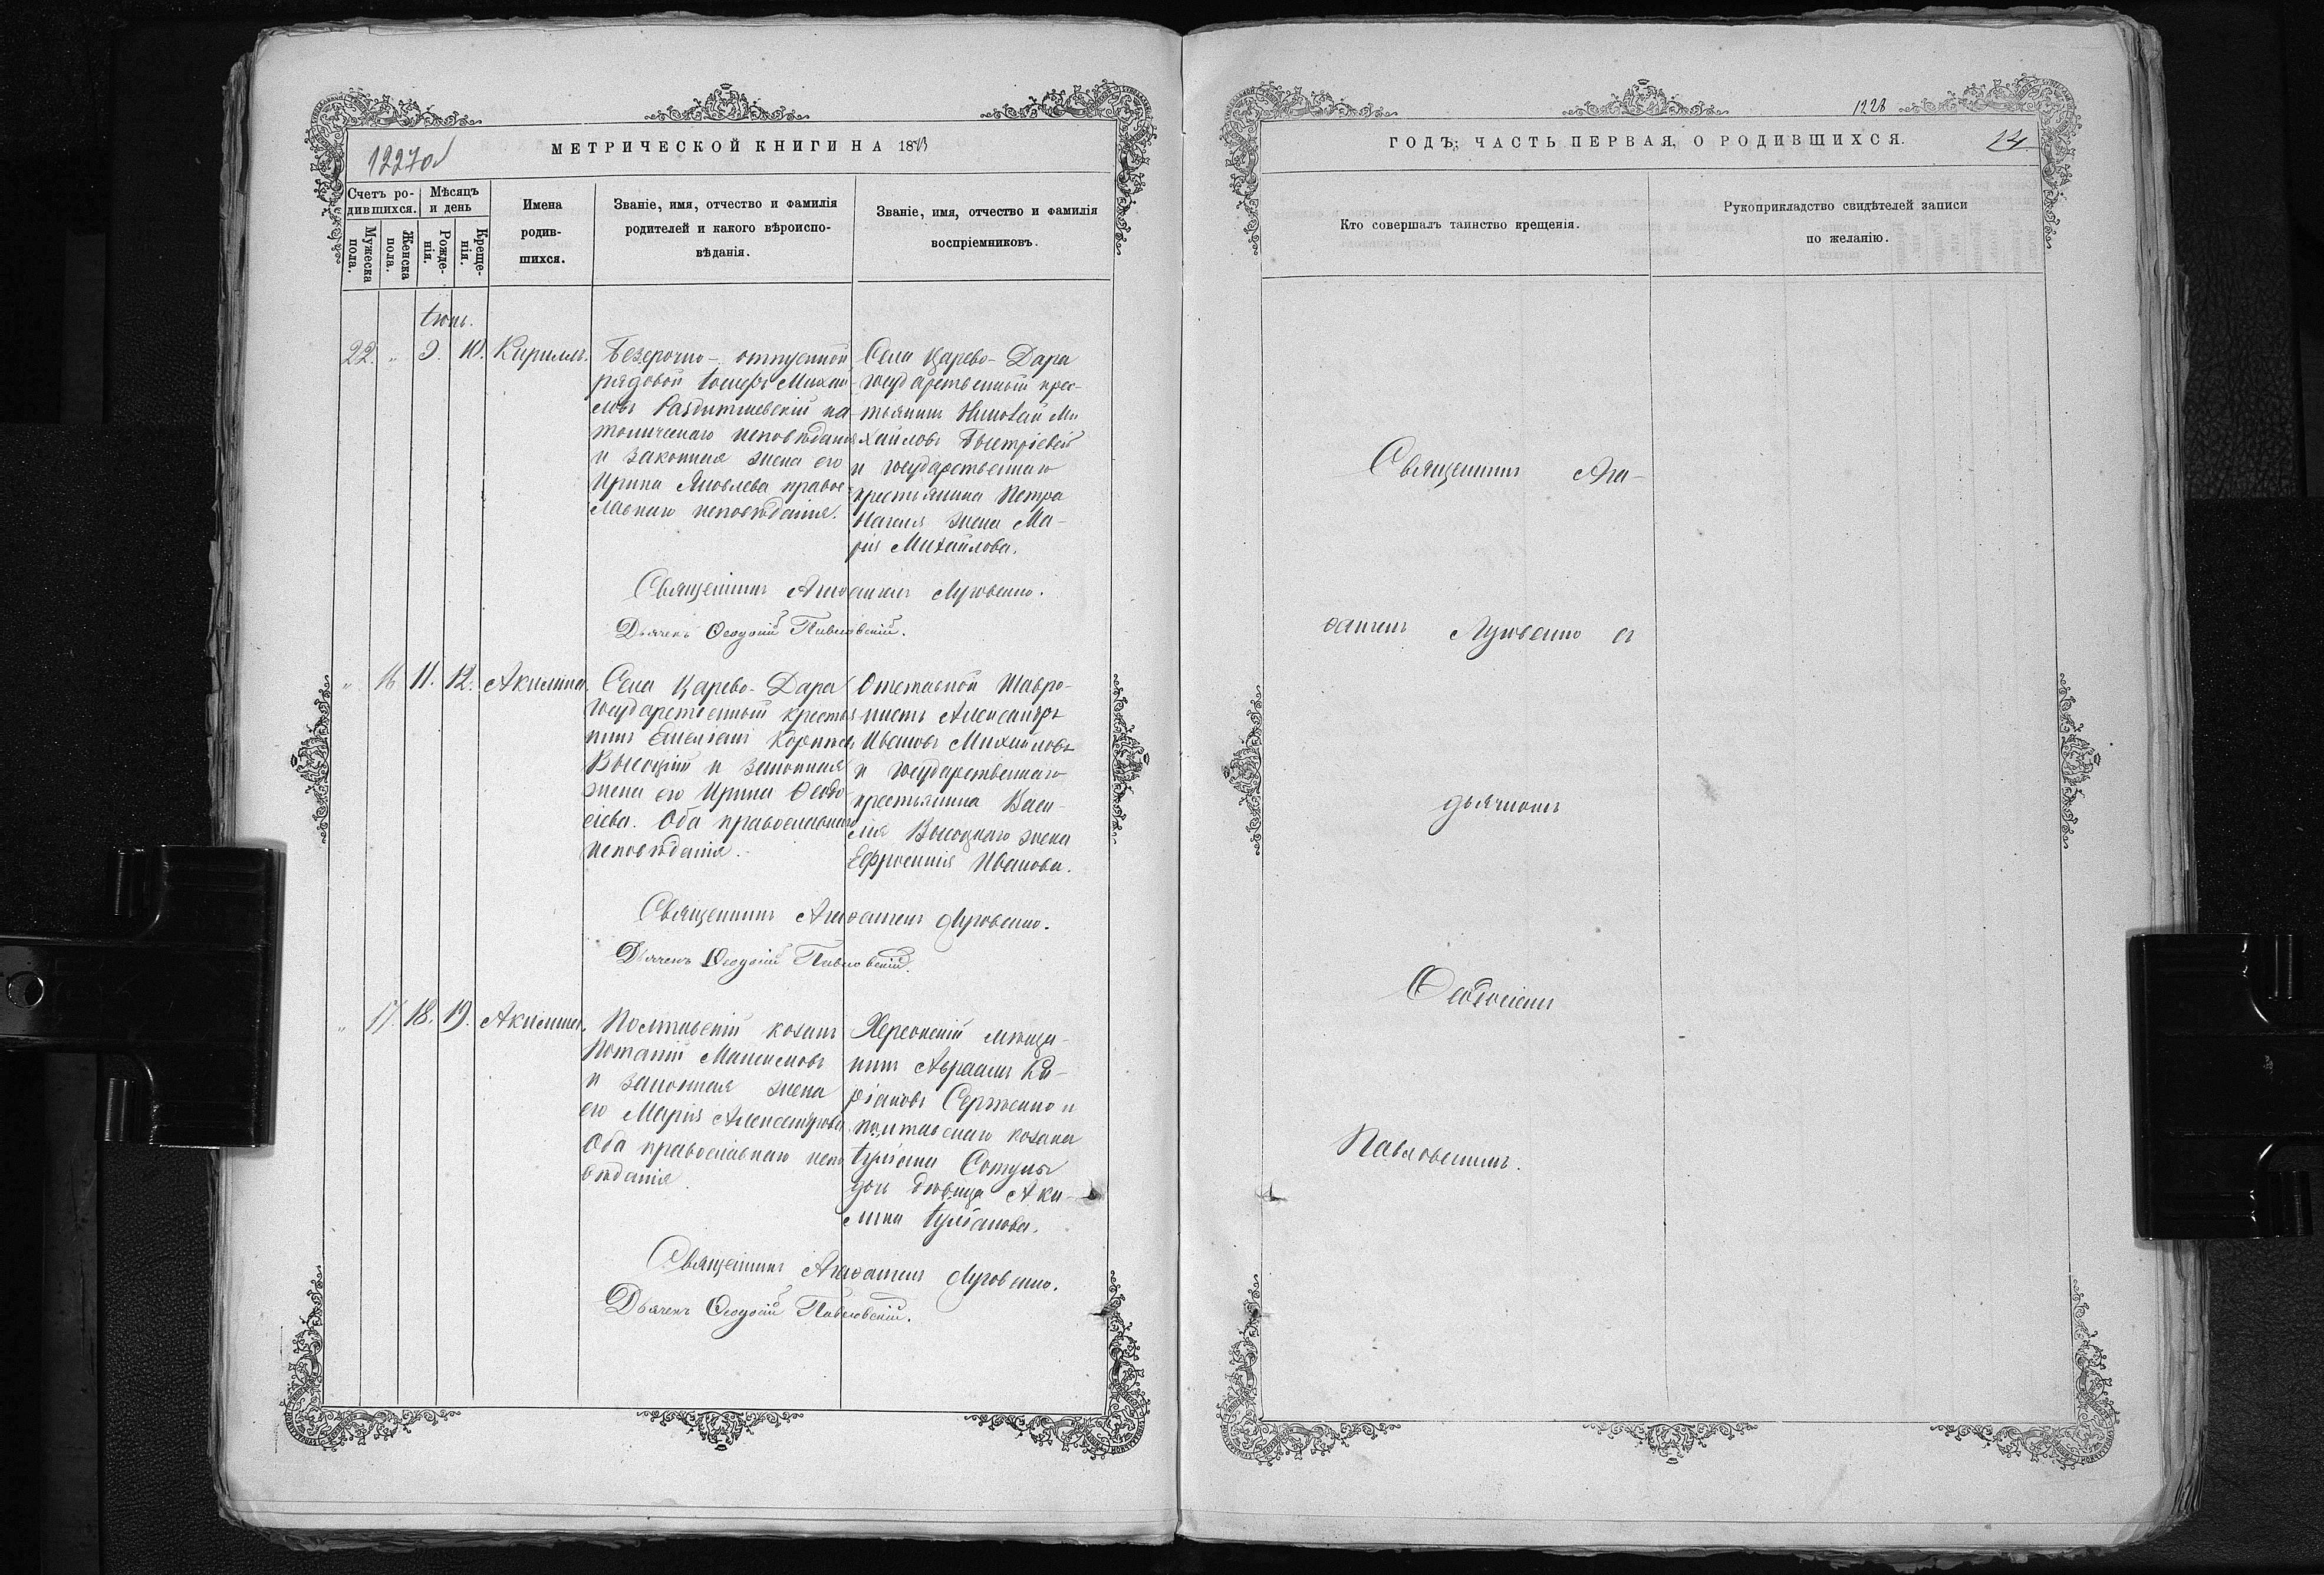 1227об
МЕТРИЧЕСКОЙ КНИГИ НА 1873
Счетъ ро-
дившихся.
Мѣсяцъ
и день
Мужеска
пола.
Женска
пола.
Рожде-
нія.
Креще-
нія.
Имена
родив-
шихся.
Званіе, имя, отчество и фамилія
родителей и какого вѣроиспо-
вѣданія.
Званіе, имя, отчество и фамилія
воспріемниковъ.
Іюнь.
22. „ 9. 10. Кириллъ.
Безсрочно-отпускной
рядовой Іосифъ Михаи
ловъ ка
толическаго исповѣданія
и законная жена его
Ирина Яковлева правос
лавнаго исповѣданія.
Села Царево-Дара
государственный крес-
тьянинъ Николай Ми
хайловъ
и государственнаго
крестьянина Петра
жена Ма-
рія Михайлова.
Священникъ Агаѳангелъ Луговенко.
Дьячекъ Ѳеодосій Павловскій.
„ 16 11. 12. Акилина.
Села Царево-Дара
государственный крестья
нинъ
Высоцкій и законная
жена его Ирина Ѳеодо
сіева. Оба православнаго
исповѣданія.
Отставной
Александръ
Ивановъ Михайловъ
и государственнаго
крестьянина Васи-
лія Высоцкаго жена
Ефросинія Иванова.
Священникъ Агаѳангелъ Луговенко.
Дьячекъ Ѳеодосій Павловскій.
„ 17. 18. 19. Акилина.
Полтавскій козакъ
Потапій Максимовъ
и законная жена
его Марія Александрова
Оба православнаго испо
вѣданія.
Херсонскій мѣща-
нинъ Авраамъ Ки-
ріаковъ Сергіенко и
полтавскаго козака
Іуліана
дѣвица Аки-
лина Іуліанова.
Священникъ Агаѳангелъ Луговенко.
Дьячекъ Ѳеодосій Павловскій.
1228
24
ГОДЪ; ЧАСТЬ ПЕРВАЯ, О РОДИВШИХСЯ.
Кто совершалъ таинство крещенія.
Рукоприкладство свидѣтелей записи
по желанію.
Священникъ Ага-
ѳангелъ Луговенко съ
дьячкомъ
Ѳеодосіемъ
Павловскимъ.